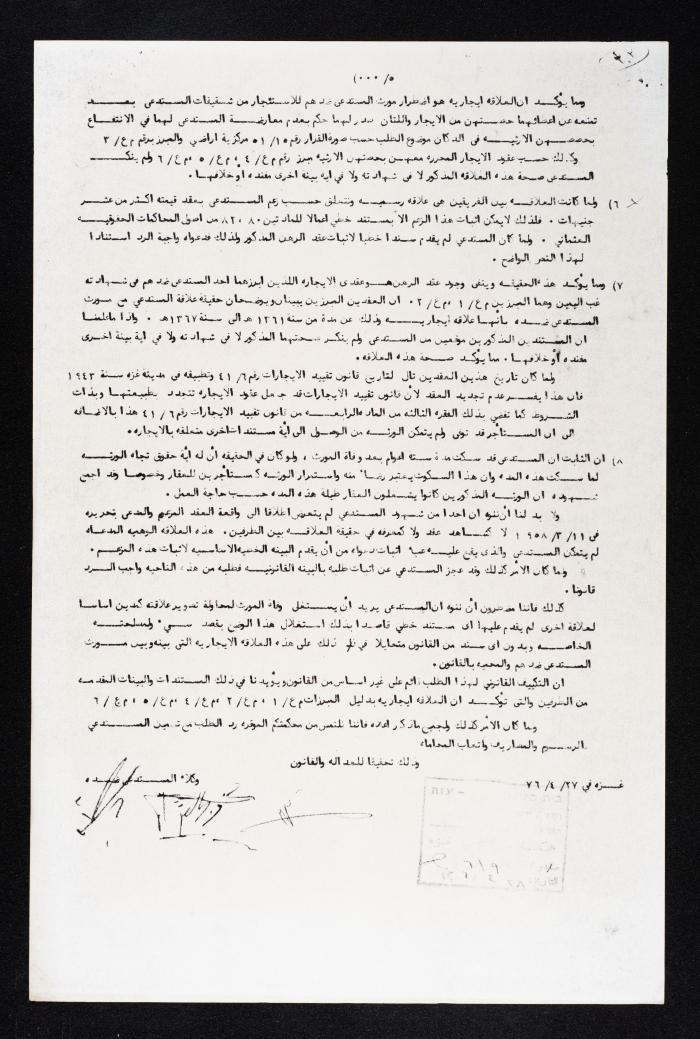 (٠٠٠ /٥
ومما يؤكد ان العلاقه ايجاريه هو اضطرار مورث المستدعى ضدهم للاستئجار من شقيقات المستدعى بعد
تمنعه عن اعطائهما حصتهن من الايجار واللتان صدر لهما حكم بعدم معارضة المستدعى لهما في الانتفاع
بحصصهن الارثيه فى الدكان موضوع الطلب حسب صورة القرار رقم ٥١/١٥ مركزية اراضي والمبرز برقم م ع/ ٣
وكذلك حسب عقود الايجار المحرره معهن بحصتهن الارثيه مبرز رقم م ع/ ٤، م ع/ ٥، م ع/ ٦ ولم ينكر
المستدعى صحة هذه العلاقه المذكوره لا فى شهادته ولا في اية بينة اخرى مفنده أو خلافها.
٦) ولما كانت العلاقه بين الفريقين هى علاقه رسميه وتتعلق حسب زعم المستدعى بعقد قيمته اكثر من عشر
جنيهات . فلذلك لا يمكن اثبات هذا الزعم الا بمستند خطي اعمالا للمادتين ٨٠، ٨٢ من اصول المحاكمات الحقوقيه
العثماني . ولما كان المستدعى لم يقدم سندا خطيا لاثبات عقد الرهن المذكور ولذلك فدعواه واجبة الرد استنادا
لهذا النص الواضح .
٧) ومما يؤكد هذه الحقيقه وينفى وجود عقد الرهن هو عقدى الايجاره اللذين ابرزهما احد المستدعى ضدهم فى شهادته
غب اليمين وهما المبرزين م ع/ ١، م ع/ ٢. ان العقدين المبرزين يبينان ويوضحان حقيقة علاقة المستدعي من مورث
المستدعى ضده بأنها علاقه ايجاريه وذلك عن مدة من سنة ١٣٦١ هـ الى سنة ١٣٦٧ هـ . واذا ما علمنا
ان المستندين المذكورين موقعين من المستدعى ولم ينكر صحتهما المذكور لا فى شهادته ولا فى اية بينة اخرى
مفنده أو خلافها . مما يؤكد صحة هذه العلاقه .
ولما كان تاريخ هذين العقدين تال لتاريخ قانون تقييد الايجارات رقم ٤١/٦ وتطبيقه فى مدينة غزه سنة ١٩٤٣
فان هذا يفسر عدم تجديد العقد لأن قانون تقييد الايجارات قد جعل عقود الايجاره تتجدد بطبيعتها وبذات
الشروط كما تقضي بذلك الفقره الثالثه من الماده الرابعه من قانون تقييد الايجارات رقم ٤١/٦ هذا بالاضافه
الى ان المستأجر قد توفى ولم يتمكن الورثه من الوصول الى أية مستندات اخرى متعلقه بالايجاره.
٨) ان الثابت ان المستدعى قد سكت مدة سته اعوام بعد وفاة المورث ، ولو كان في الحقيقه أن له أية حقوق تجاه الورثه
لما سكت هذه المده وان هذا السكوت يعتبر رضاءً منه واستمرار الورثه كمستأجرين للعقار وخصوصا وقد اجمع
شهوده ان الورثه المذكورين كانوا يشغلون العقار طيلة هذه المده حسب حاجة العمل.
ولا بد لنا أن ننوه ان احدا من شهود المستدعى لم يتعرض اطلاقا الى واقعة العقد المزعوم والمدعى بتحريره
فى ١١/ ٣/ ١٩٥٨ لا كشاهد عقد ولا كمعرفه في حقيقة العلاقه بين الطرفين . هذه العلاقه الرهنيه المدعاه
لم يتمكن المستدعى والذى يقع عليه عبء اثبات دعواه من أن يقدم البينه الخطيه الاساسيه لاثبات هذه المزعم .
وما كان الأمر كذلك وقد عجز المستدعى عن اثبات طلبه بالبينه القانونيه فطلبه من هذه الناحيه واجب الرد
قانونا.
كذلك فاننا مضطرون أن ننوه ان المستدعى يريد أن يستغل وفاة المورث لمحاولة تصوير علاقته كمدين اساسا
لعلاقة اخرى لم يقدم عليها أى مستند خطي قاصدا بذلك استغلال هذا الوضع بقصد سيء ولمصلحته
الخاصه وبدون اى سند من القانون متحايلا في ذلك على هذه العلاقه الايجاريه التى بينه وبين مورث
المستدعى ضدهم والمحميه بالقانون.
ان التكييف القانوني لهذا الطلب قائم على غير اساس من القانون ويؤيدنا في ذلك المستندات والبينات المقدمه
من الطرفين والتى تؤكد ان العلاقه ايجاريه بدليل المبرزات م ع/ ١، م ع/ ٢، م ع/ ٤، م ع/ ٥، م ع/ ٦
وما كان الأمر كذلك ولجميع ما ذكر اعلاه فاننا نلتمس من محكمتكم الموقره رد الطلب مع تضمين المستدعي
الرسوم والمصاريف واتعاب المحاماه
وذلك تحقيقا للعداله والقانون
غزه في ٢٧/ ٤/ ٧٦
وكلاء المستدعى ضده